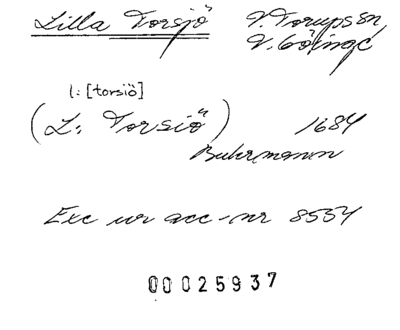 Lilla Torsjö V. Torups sn,
V. Göinge
l: [torsiö]
(L: Torsiö) 1684
Buhrmann
Exc ur acc-nr 8554
00025937